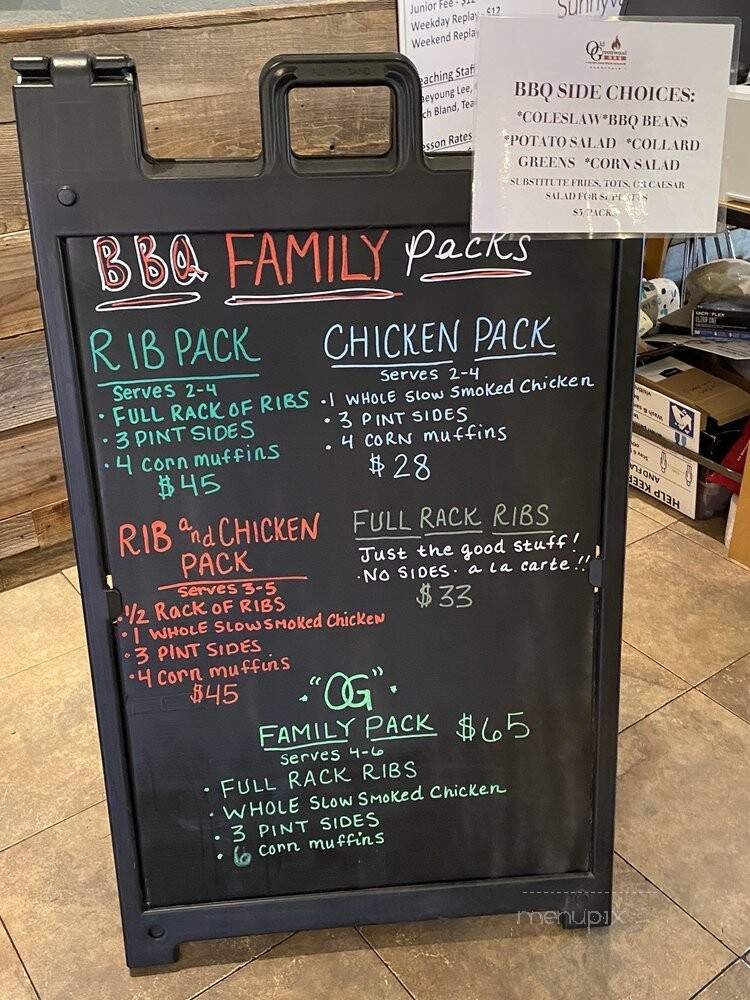 Junior Fee -
Weekday Replay $12
Weekend Replay
Teaching Staff
Taeyoung Lee,
Lesson Rates
Old
Greenwood
BBQ
BBQ SIDE CHOICES:
*COLESLAW*BBQ BEANS
*POTATO SALAD *COLLARD
GREENS *CORN SALAD
SUBSTITUTE FRIES, TOTS, OR CAESAR
SALAD FOR
$5/PACK
BBQ FAMILY Packs
RIB PACK
Serves 2-4
• FULL RACK OF RIBS
• 3 PINT SIDES
• 4 corn muffins
$45
CHICKEN PACK
Serves 2-4
•1 WHOLE Slow Smoked Chicken
• 3 PINT SIDES
• 4 CORN muffins
$28
RIB and CHICKEN
PACK
serves 3-5
•1/2 Rack OF RIBS
•1 WHOLE SLOW SMOKed Chicken
•3 PINT SIDES
•4 corn muffins
$45
FULL RACK RIBS
Just the good stuff!
•NO SIDES• a la carte!!
$33
•"OG"•
FAMILY PACK $65
Serves 4-6
• FULL RACK RIBS
• WHOLE SLOW SMOKed Chicken
• 3 PINT SIDES
• 6 corn muffins
HELP KEEP
menupix